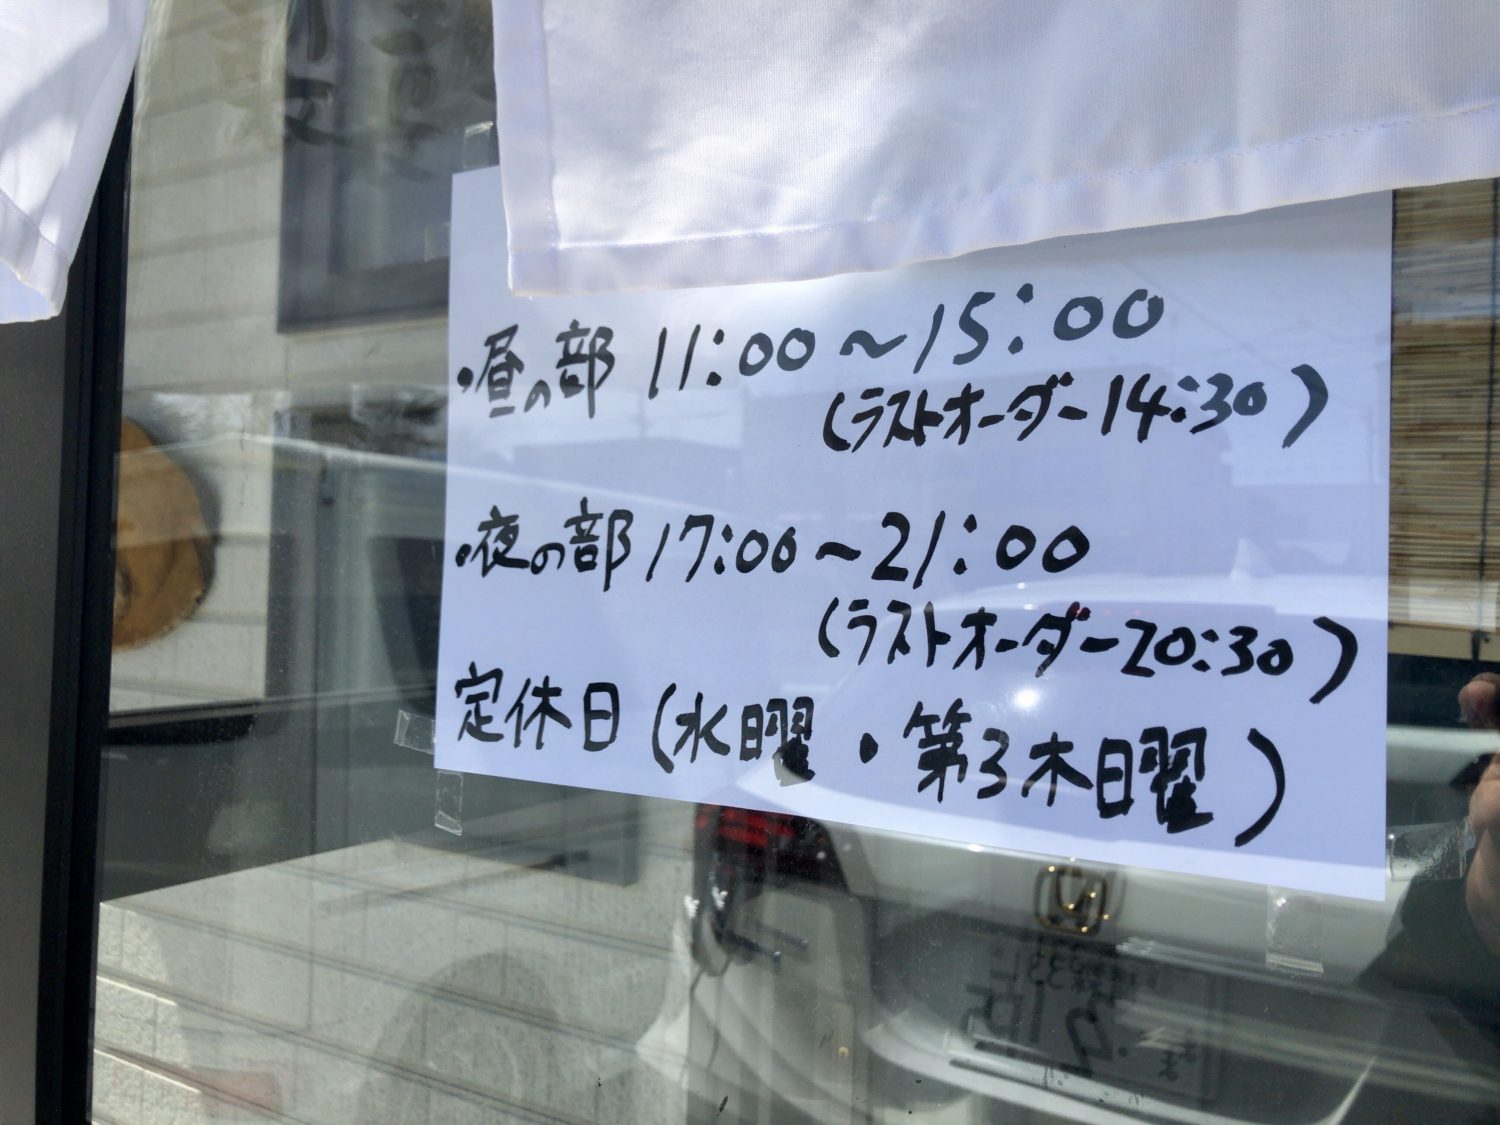 ・昼の部 11:00～15:00
(ラストオーダー14:30)
・夜の部 17:00～21:00
(ラストオーダー20:30)
定休日(水曜・第3木曜)